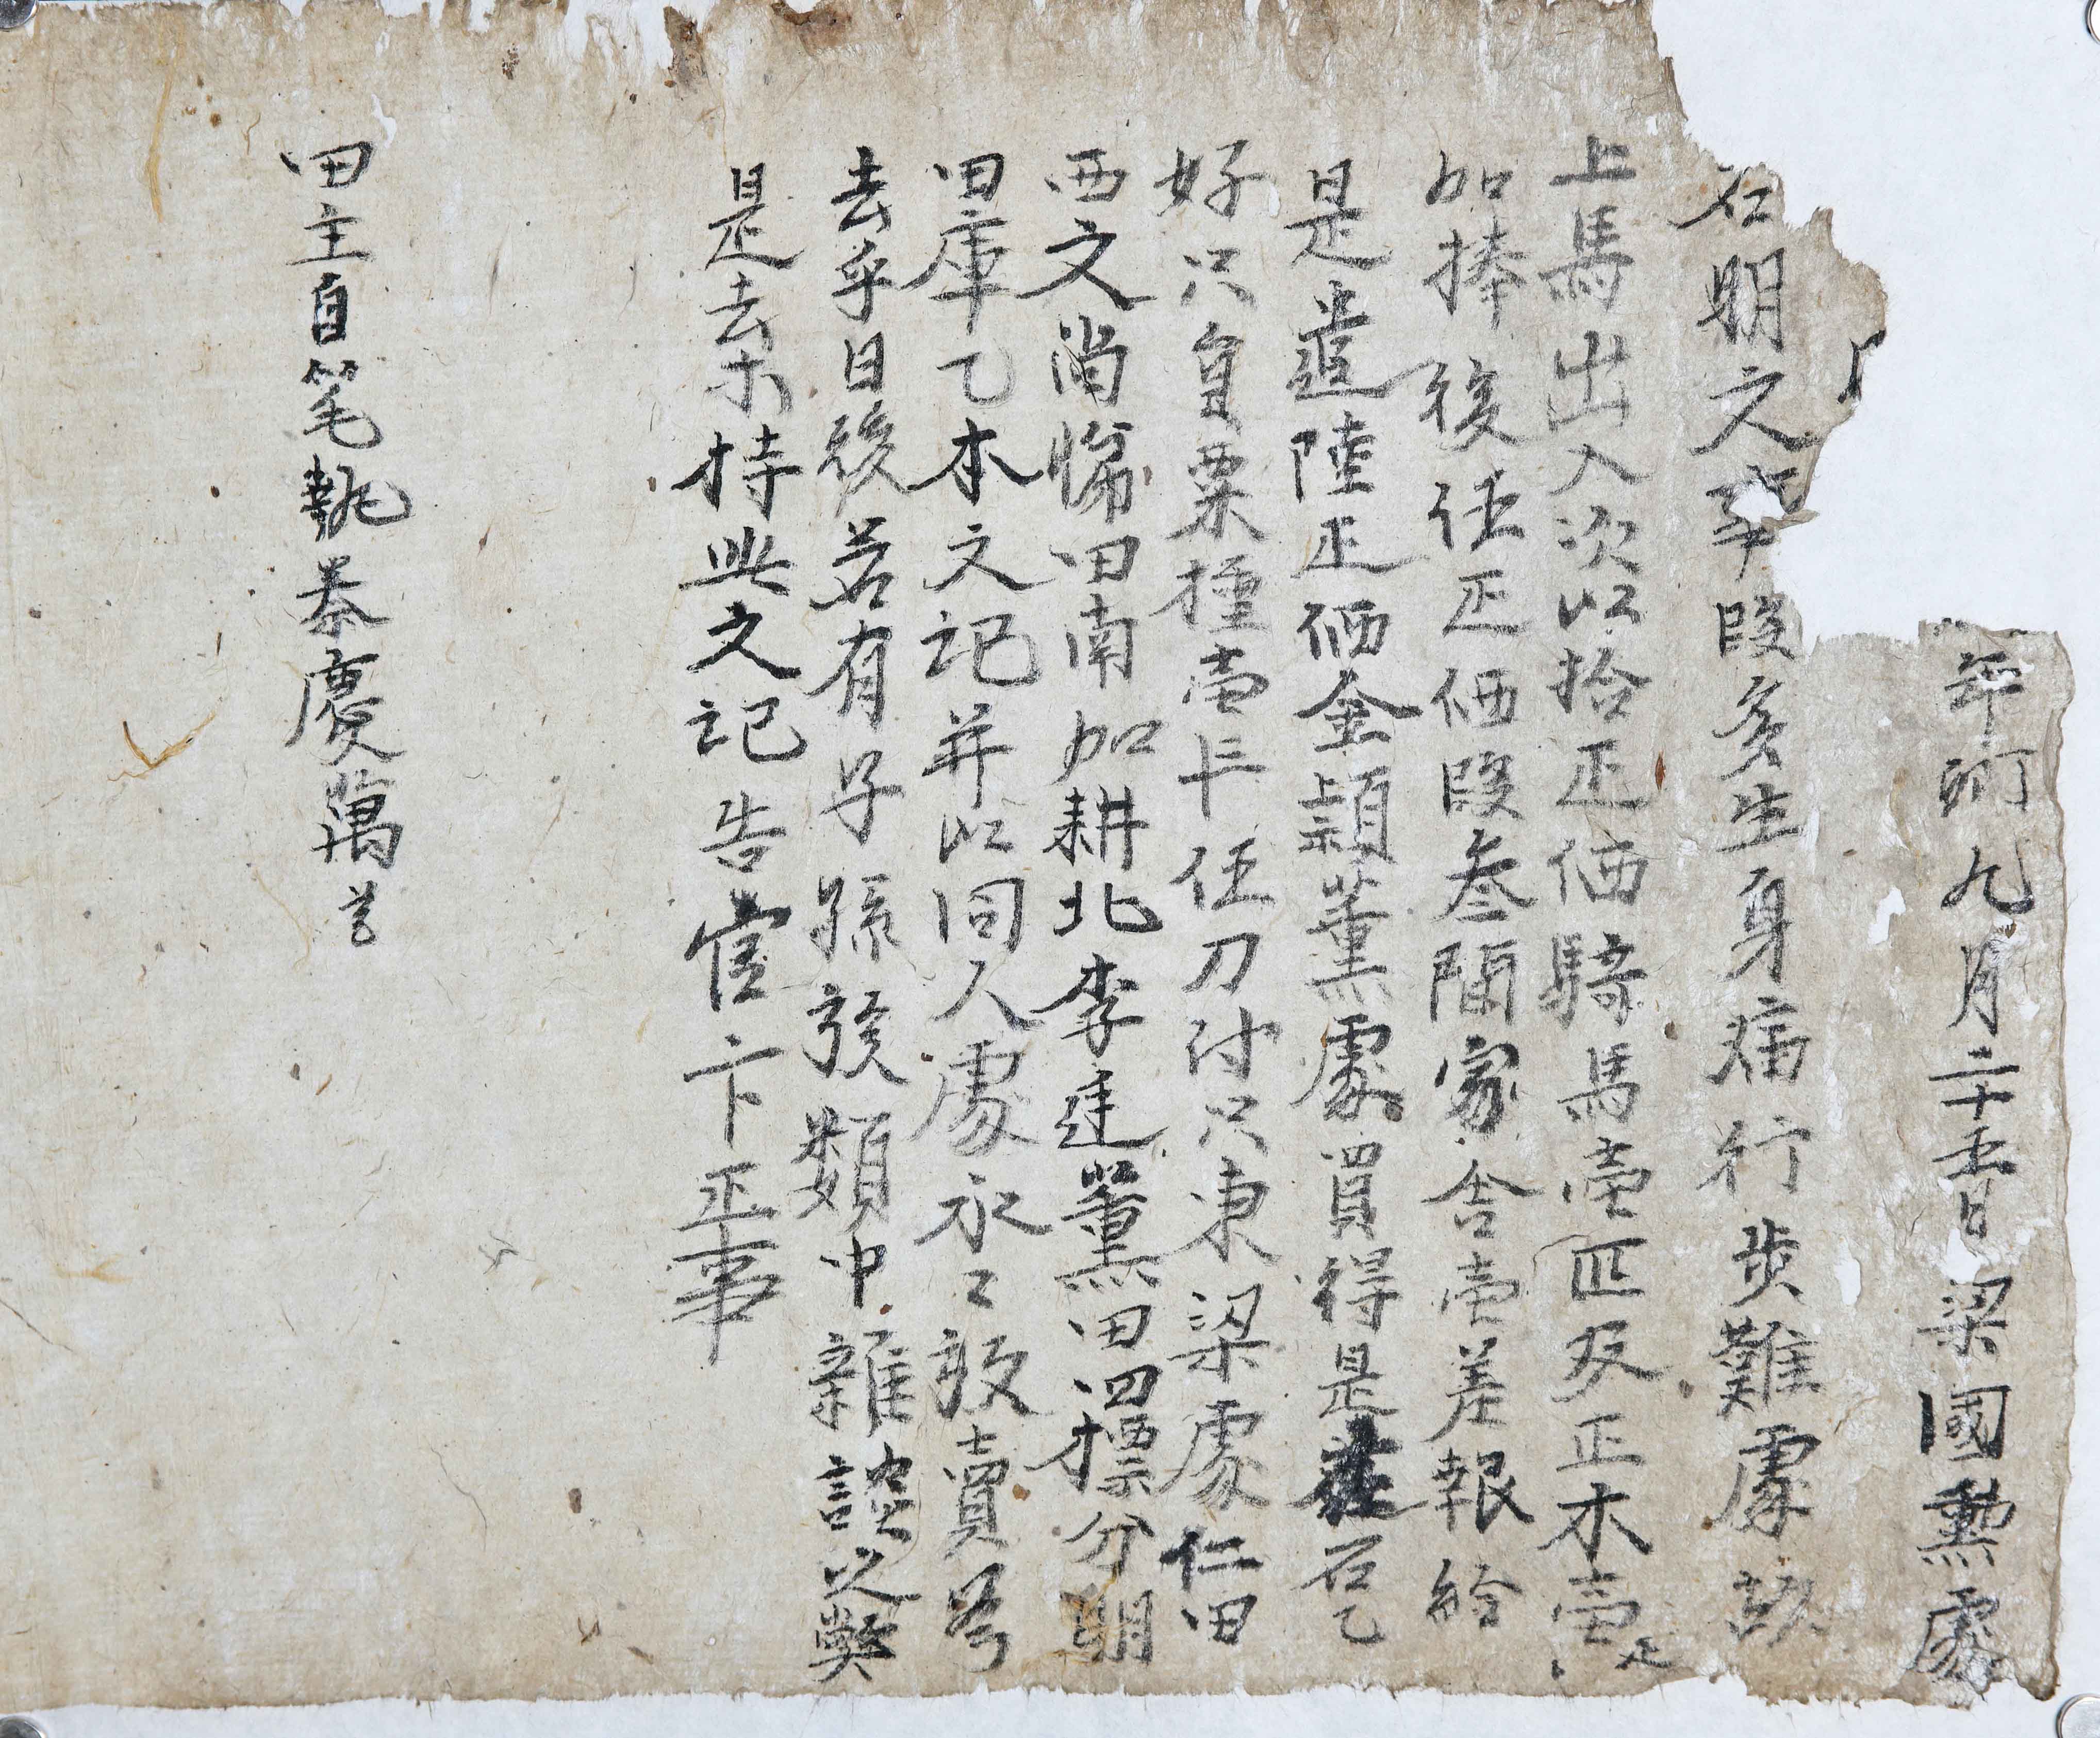 年卯九月二十五日梁國勳處
右明文事段矣生身痛行步難處故
上馬出入次以拾疋価騎馬壹匹及正木壹疋
加捧後任疋価段叁間家舍壹差報給
是遣陸疋価金顯薰處買得是在石乙
好只負栗種壹斗任刀付只東梁處仁田
西文尚悌田南加耕北李廷薰田四標分明
田庫乙本文記幷以同人處永〻放賣爲
去乎日後若有子孫族類中雜談之弊
是去等持此文記告官卞正事
田主自筆執秦慶萬